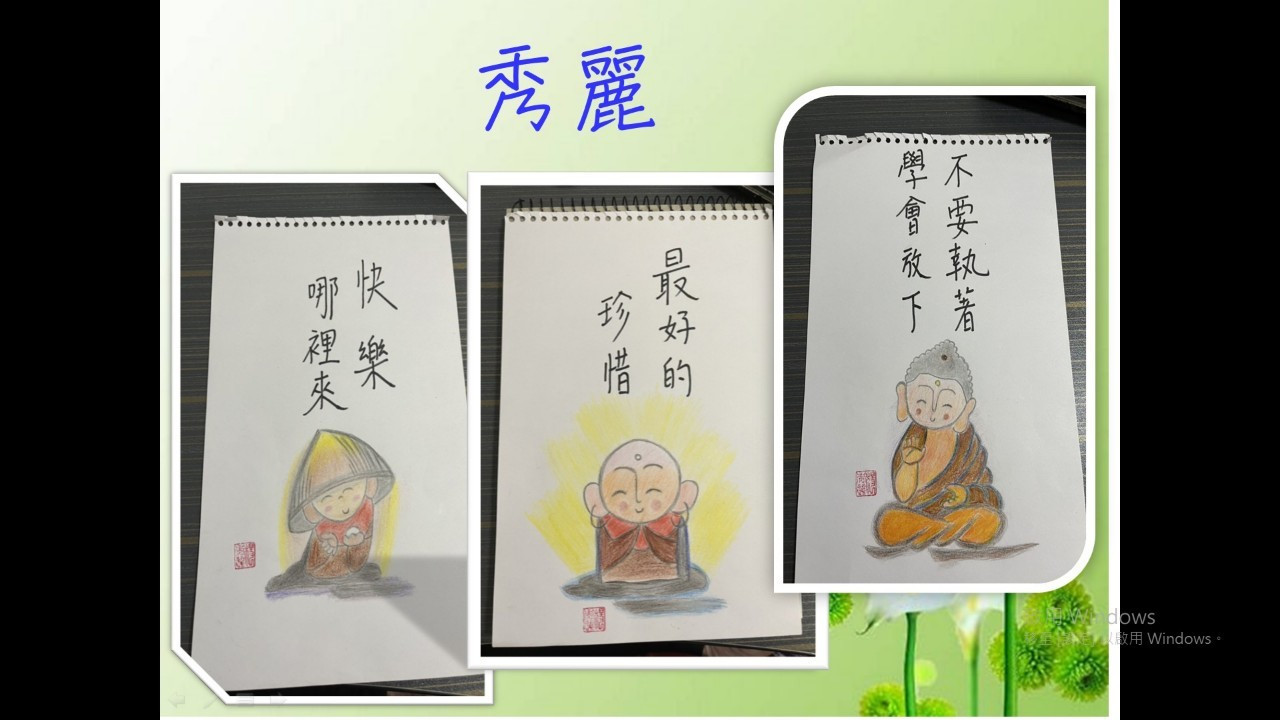 秀麗
快樂
哪裡來
最好的
珍惜
不要執著
學會放下
以啟用 Windows。